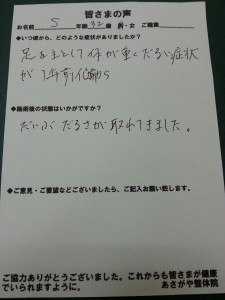 皆さまの声
お名前 S 年齢 32 歳 男・女 ご職業
◆いつ頃から、どのような症状がありましたか?
足を主として体が重くだるい症状
が 1年前位から
◆施術後の状態はいかがですか?
だいぶ だるさが 取れてきました。
◆ご意見・ご要望などございましたら、ご記入お願い致します。
ご協力ありがとうございました。これからも皆さまが健康
でいられますように。
あさがや整体院